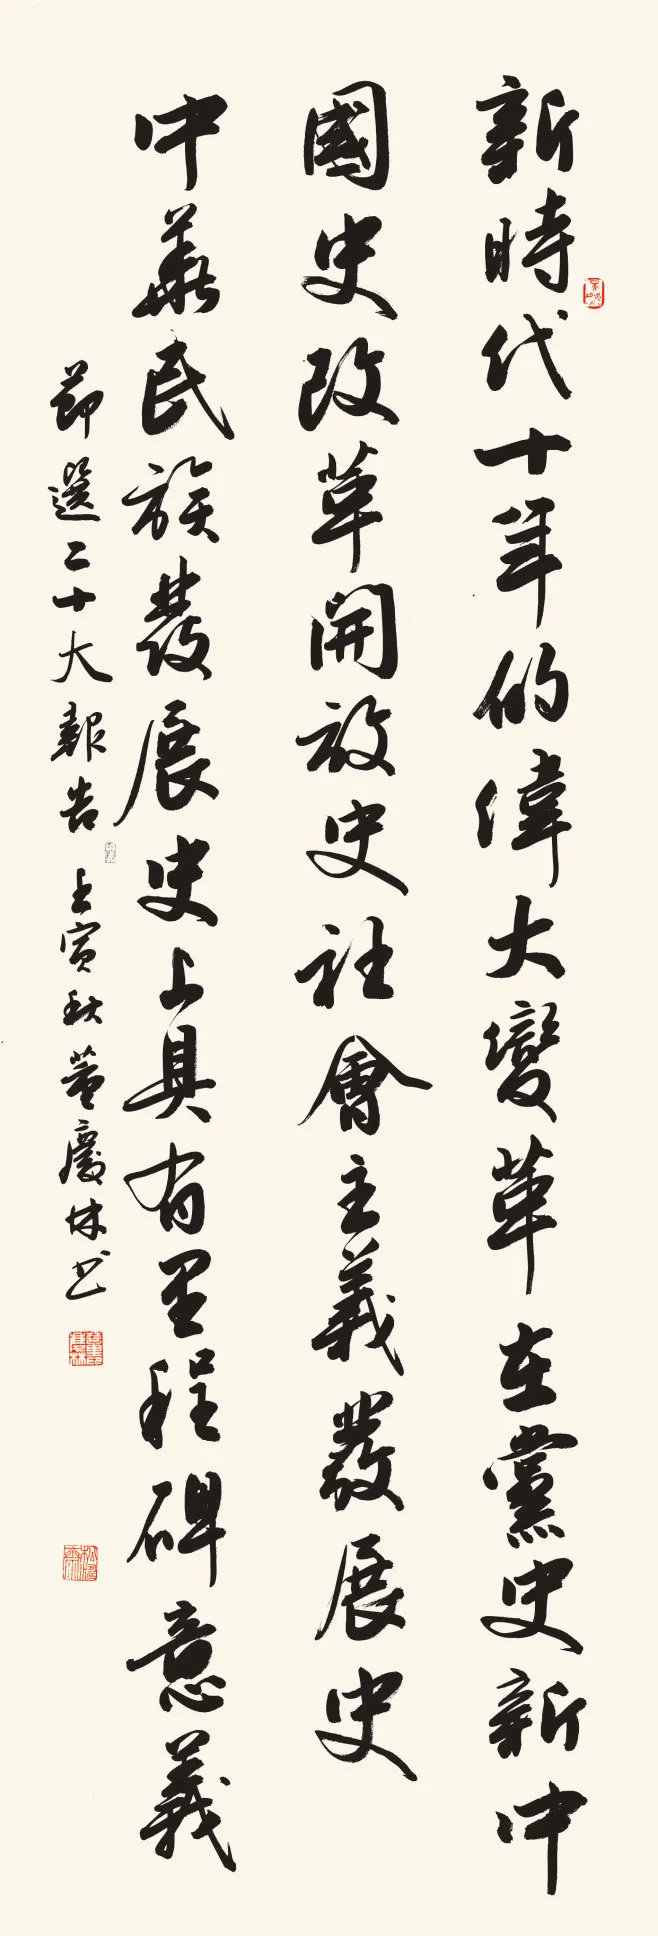 新時代十年的偉大變革在黨史新中
國史改革開放史社會主義發展史
中華民族發展史上具有里程碑意義
節選二十大報告 壬寅秋 董慶林書